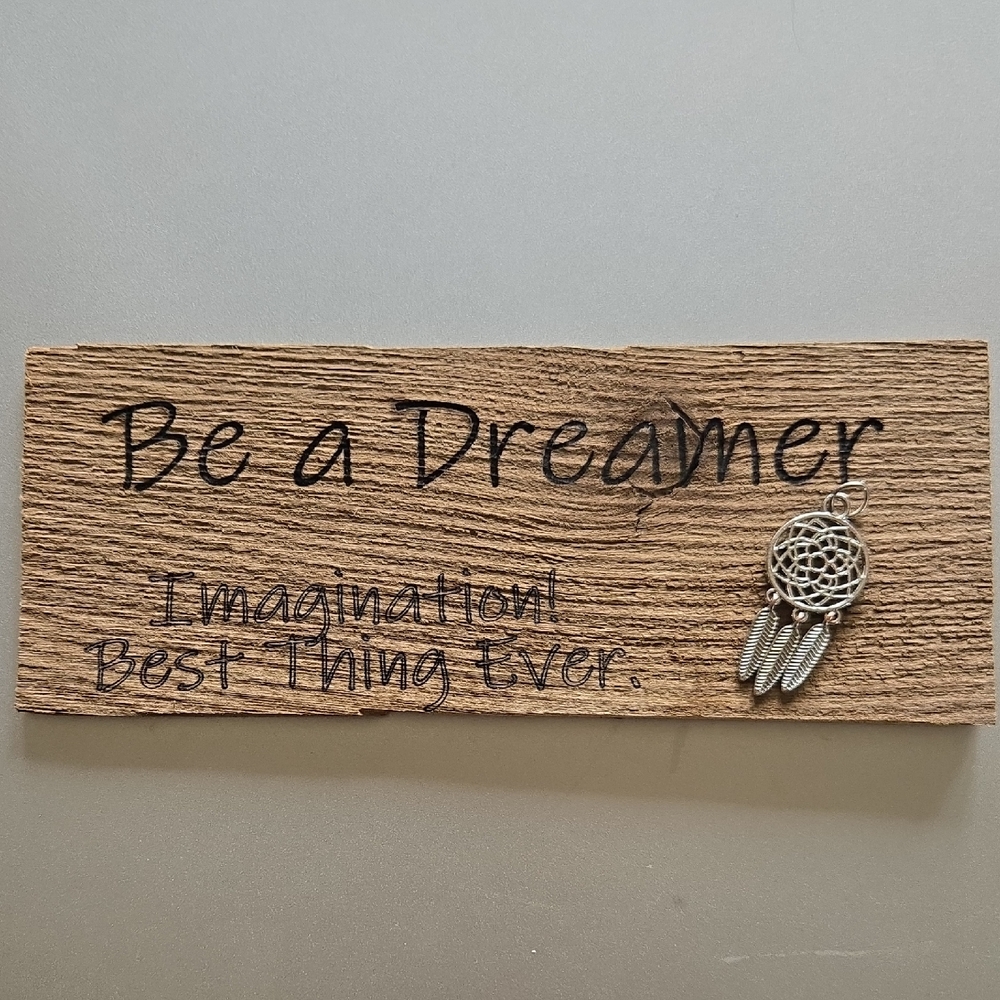 Be a Dreamer
Imagination!
Best Thing Ever.